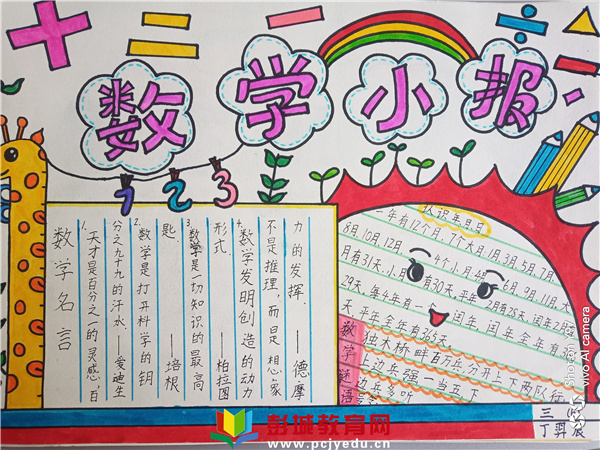 数学小报
1 2 3
数学名言
1.天才是百分之一的灵感，百
分之九十九的汗水——爱迪生
2.数学是打开科学的钥
匙.——培根
3.数学是一切知识的最高
形式.——柏拉图
4.数学发明创造的动力
不是推理，而是想象
力的发挥.——德摩
认识年月日
一年有12个月，7个大月1月3月5月，7月
8月10月12月
月有31天，小月
4个小月4月
6月9月11月
有30天，平年2月有28天，闰年2月
29天，每4年有一个闰年，闰年全年有
天，平年全年有365天.
数学谜语
独木桥畔百万兵分开上下两队行
上边兵强一当五下
边兵多听
三
丁羿宸
彭城教育网
www.pcjyedu.cn
Shot on
vivo AI camera